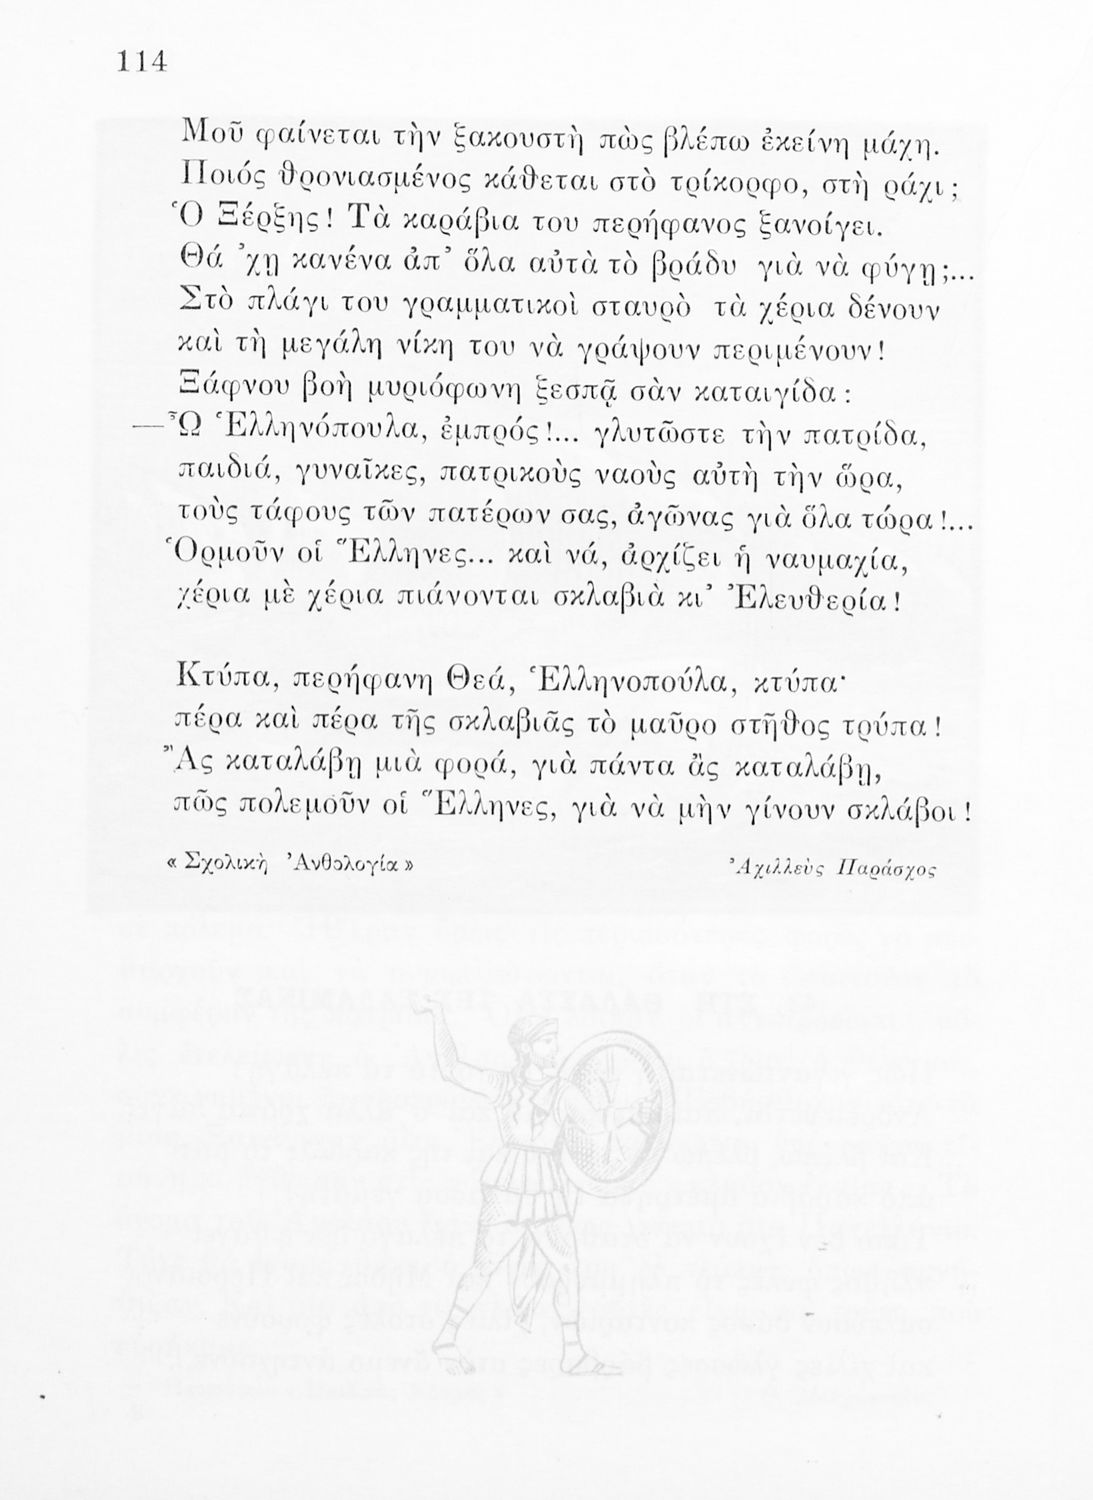 114
Μοῦ φαίνεται τὴν ξακουστὴ πὼς βλέπω ἐκείνη μάχη.
Ποιός θρονιασμένος κάθεται στὸ τρίκορφο, στὴ ράχι;
Ὁ Ξέρξης! Τὰ καράβια του περήφανος ξανοίγει.
Θά ’χῃ κανένα ἀπ’ ὅλα αὐτὰ τὸ βράδυ γιὰ νὰ φύγῃ;...
Στὸ πλάγι του γραμματικοὶ σταυρὸ τὰ χέρια δένουν
καὶ τὴ μεγάλη νίκη του νὰ γράψουν περιμένουν!
Ξάφνου βοὴ μυριόφωνη ξεσπᾷ σὰν καταιγίδα:
—Ὦ Ἑλληνόπουλα, ἐμπρός!... γλυτῶστε τὴν πατρίδα,
παιδιά, γυναῖκες, πατρικοὺς ναοὺς αὐτὴ τὴν ὥρα,
τοὺς τάφους τῶν πατέρων σας, ἀγῶνας γιὰ ὅλα τώρα!...
Ὁρμοῦν οἱ Ἕλληνες... καὶ νά, ἀρχίζει ἡ ναυμαχία,
χέρια μὲ χέρια πιάνονται σκλαβιὰ κι’ Ἐλευθερία!
Κτύπα, περήφανη Θεά, Ἑλληνοπούλα, κτύπα·
πέρα καὶ πέρα τῆς σκλαβιᾶς τὸ μαῦρο στῆθος τρύπα!
Ἂς καταλάβῃ μιὰ φορά, γιὰ πάντα ἂς καταλάβῃ,
πῶς πολεμοῦν οἱ Ἕλληνες, γιὰ νὰ μὴν γίνουν σκλάβοι!
«Σχολικὴ Ἀνθολογία» Ἀχιλλεὺς Παράσχος